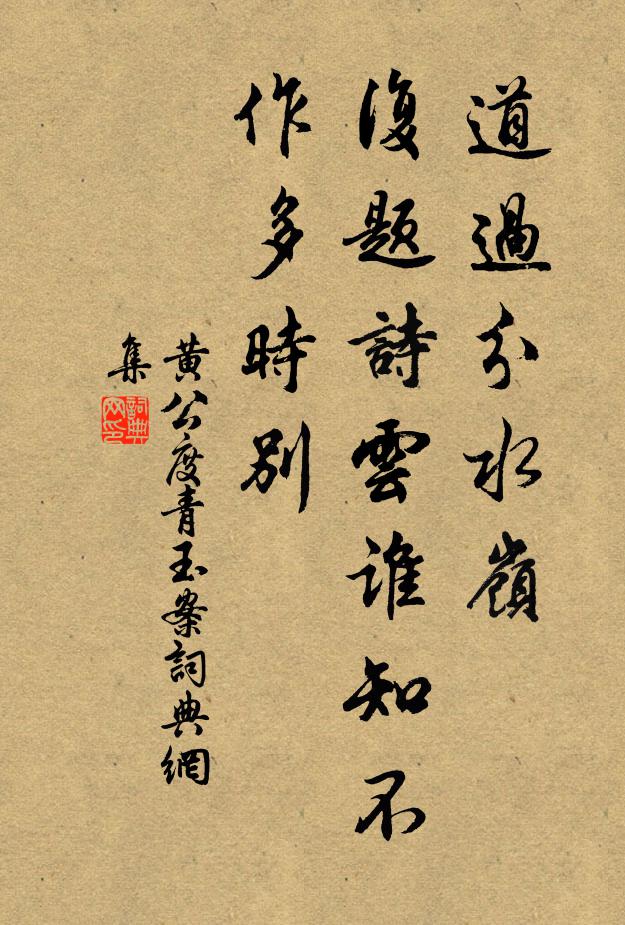 道過分水嶺
復題詩雲誰知不
作多時別
黄公度青玉案詞典網
集
詞典網印